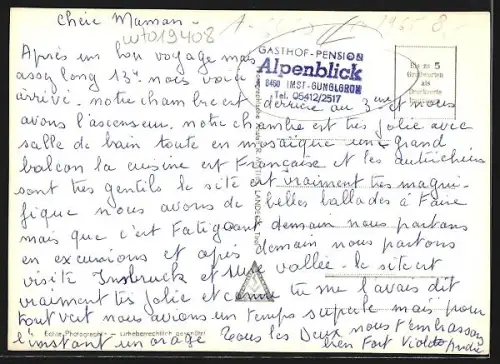 Chère Maman -
wto19408
GASTHOF-PENSION
Alpenblick
6460 IMST-GUNGLGRÜN
Tel. 05412/2517
Bis zu 5
Grußworten
als
Drucksache
Après un bon voyage mais
assez long 13h nous voici
arrivé. notre chambre est derrière au 3eme et nous
avons l'ascenseur. notre chambre est très jolie avec
salle de bain toute en mosaïque un grand
balcon la cuisine est Française et les autrichiens
sont très gentils le site est vraiment très magni-
fique nous avons de belles ballades à Faire
mais que c'est Fatigant demain nous partons
en excursions et après demain nous partons
visite Insbruck et vallée - le site est
vraiment très jolie et comme tu me l'avais dit
tout vert nous avions un temps superbe mais pour
l'instant un orage Tous les Deux nous t'embrassons
bien Fort
Echte Photographie - urheberrechtlich geschützt